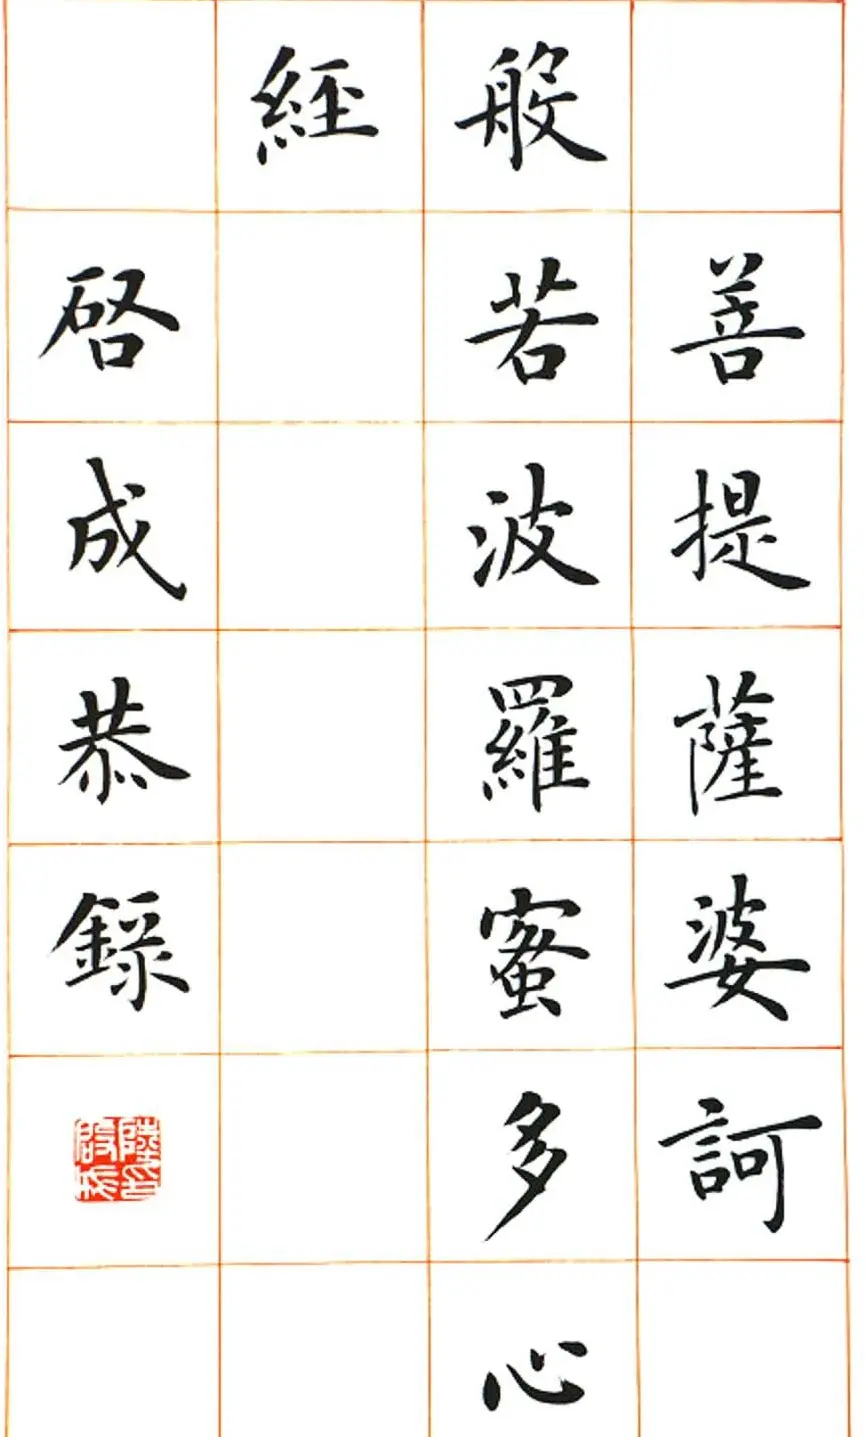 菩提薩婆訶
般若波羅蜜多心
經
啓成恭錄
陸印
啟成